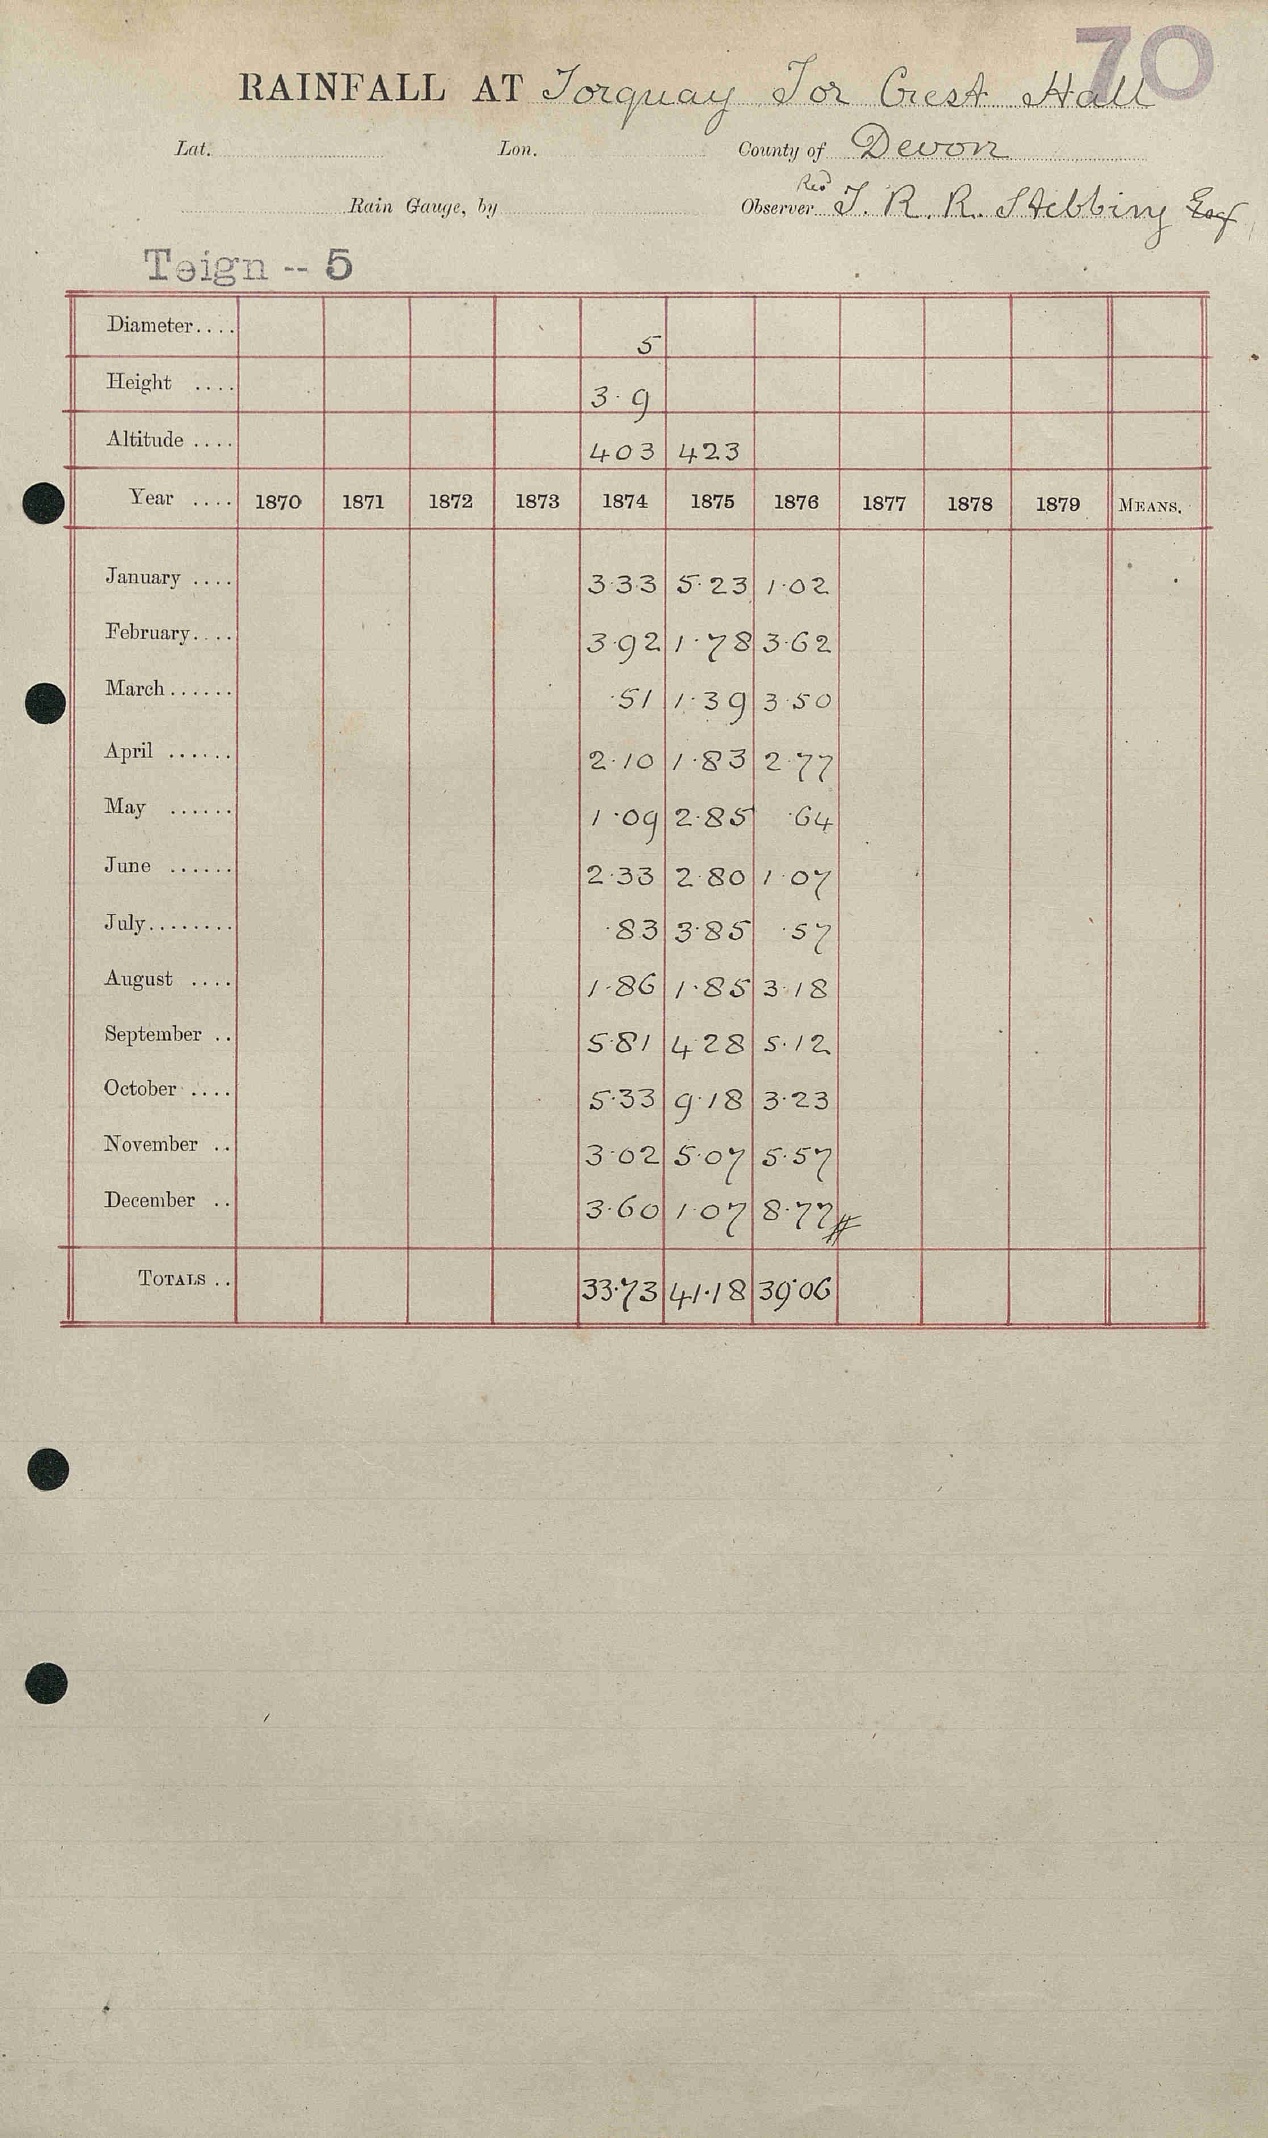 70
RAINFALL AT Torquay Tor Crest Hall
Lat. Lon. County of Devon
Rain Gauge, by Observer Revd T. R. R. Stebbing Esq
Teign -- 5
Diameter.... 5
Height .... 3.9
Altitude .... 403 423
Year .... 1870 1871 1872 1873 1874 1875 1876 1877 1878 1879 MEANS.
January .... 3.33 5.23 1.02
February.... 3.92 1.78 3.62
March...... .51 1.39 3.50
April ...... 2.10 1.83 2.77
May ...... 1.09 2.85 .64
June ...... 2.33 2.80 1.07
July........ .83 3.85 .57
August .... 1.86 1.85 3.18
September .. 5.81 4.28 5.12
October .... 5.33 9.18 3.23
November .. 3.02 5.07 5.57
December .. 3.60 1.07 8.77
TOTALS .. 33.73 41.18 39.06